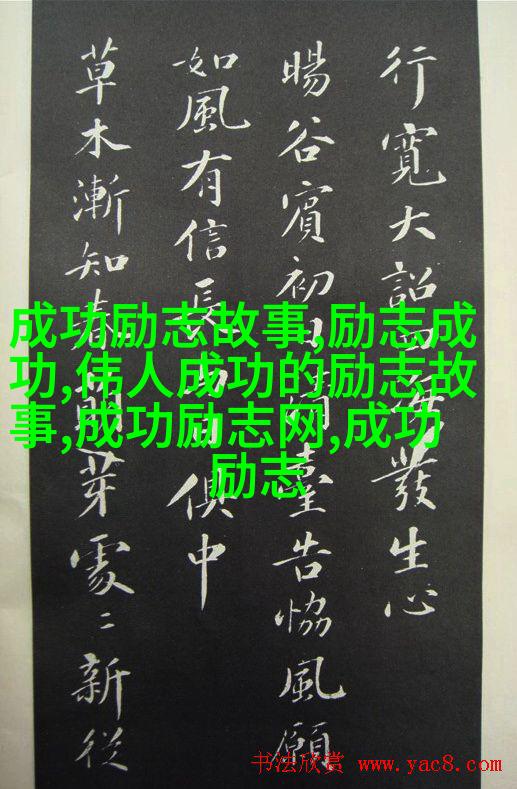 行寬大詔發生心
暘谷賓初臺告協風願
如風有信長俱中
草木漸知春芽處〻新從
成功励志故事,励志成
功,伟人成功的励志故
事,成功励志网,成功
励志
书法欣赏 www.yac8.com